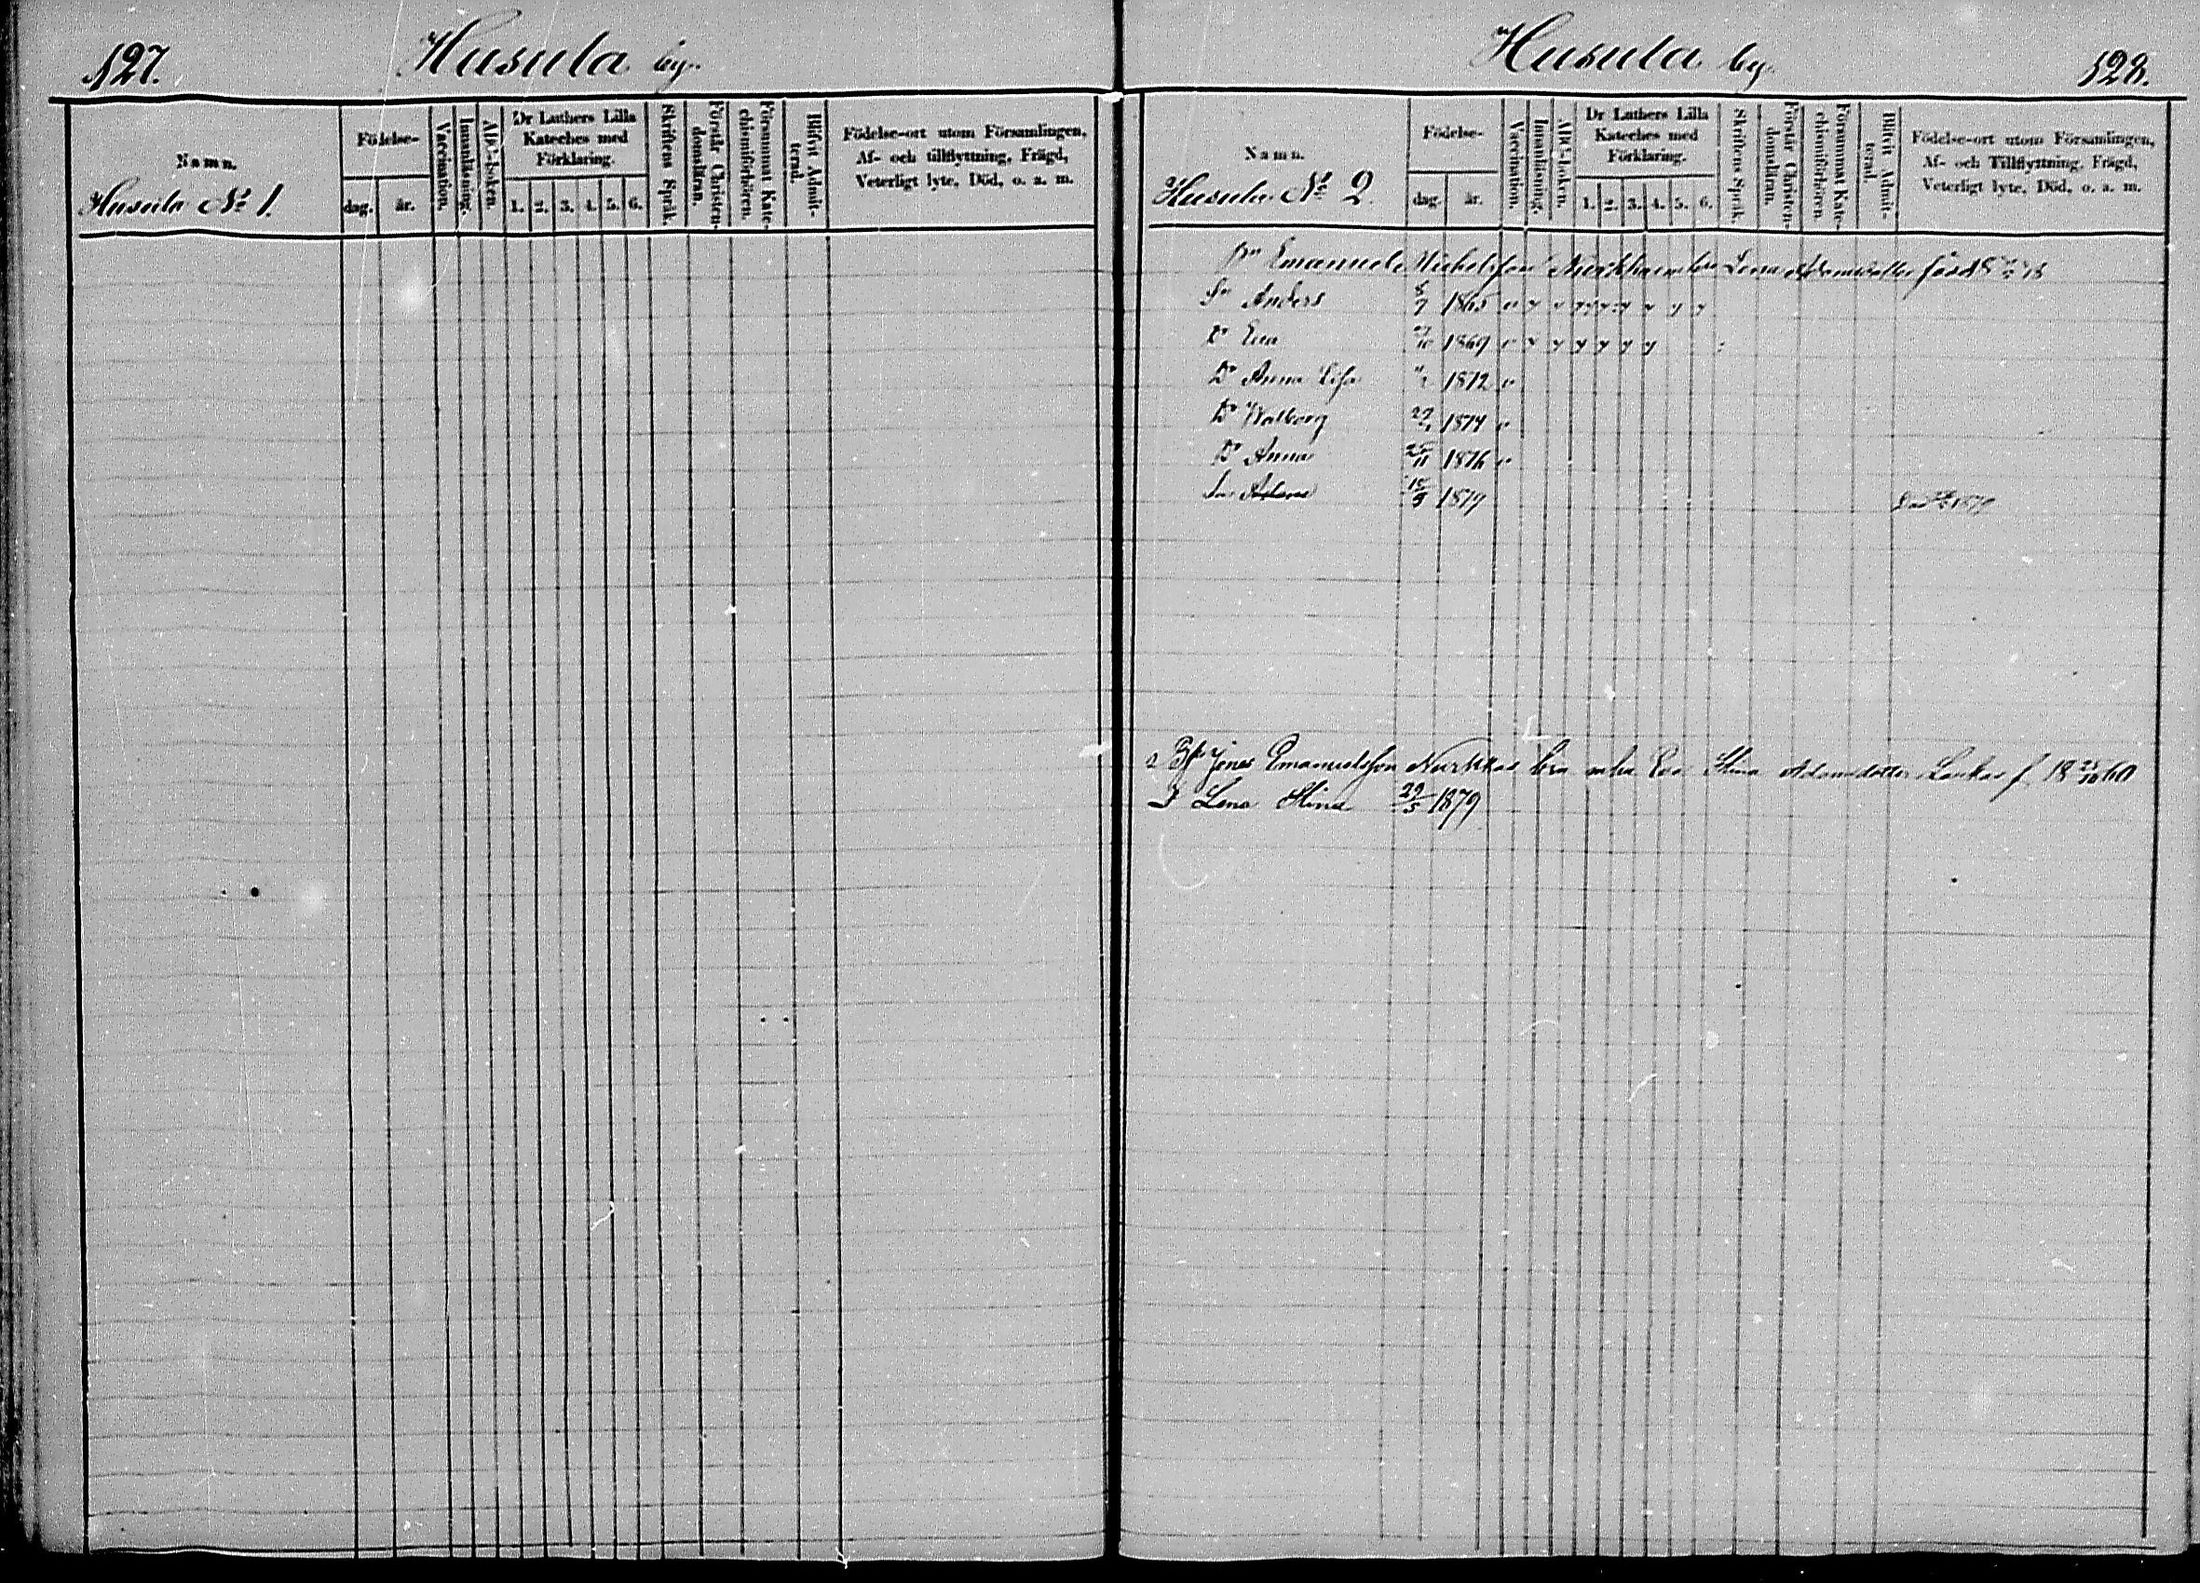 127.
Husula by.
Namn.
Husula No 1.
Födelse-
dag.
år.
Vaccination.
Innanläsning.
ABC-boken.
Dr Luthers Lilla
Kateches med
Förklaring.
1. 2. 3. 4. 5. 6.
Skriftens Språk.
Förstår Christen-
domsläran.
Försummat Kate-
chismiförhören.
Blifvit Admit-
terad.
Födelse-ort utom Församlingen,
Af- och tillflyttning, Frägd,
Veterligt lyte, Död, o. a. m.
Husula by.
128.
Namn.
Husula No 2.
Födelse-
dag.
år.
Vaccination.
Innanläsning.
ABC-boken.
Dr Luthers Lilla
Kateches med
Förklaring.
1. 2. 3. 4. 5. 6.
Skriftens Språk.
Förstår Christen-
domsläran.
Försummat Kate-
chismiförhören.
Blifvit Admit-
terad.
Födelse-ort utom Församlingen,
Af- och Tillflyttning, Frägd,
Veterligt lyte, Död, o. a. m.
Emanuels Michelsson Lena Adamsdotter född
Sn Anders 8/7 1865
Dr Eva 1869
Dr Anna Lisa 1872
Dr Walborg 1874
Dr Anna 25/11 1876
Sn 18/9 1879 1879
Jonas Emanuelsson Nurkkas Eva Stina Adamsdotter f. 18 23/10 60
D Lena Stina 29/5 1879